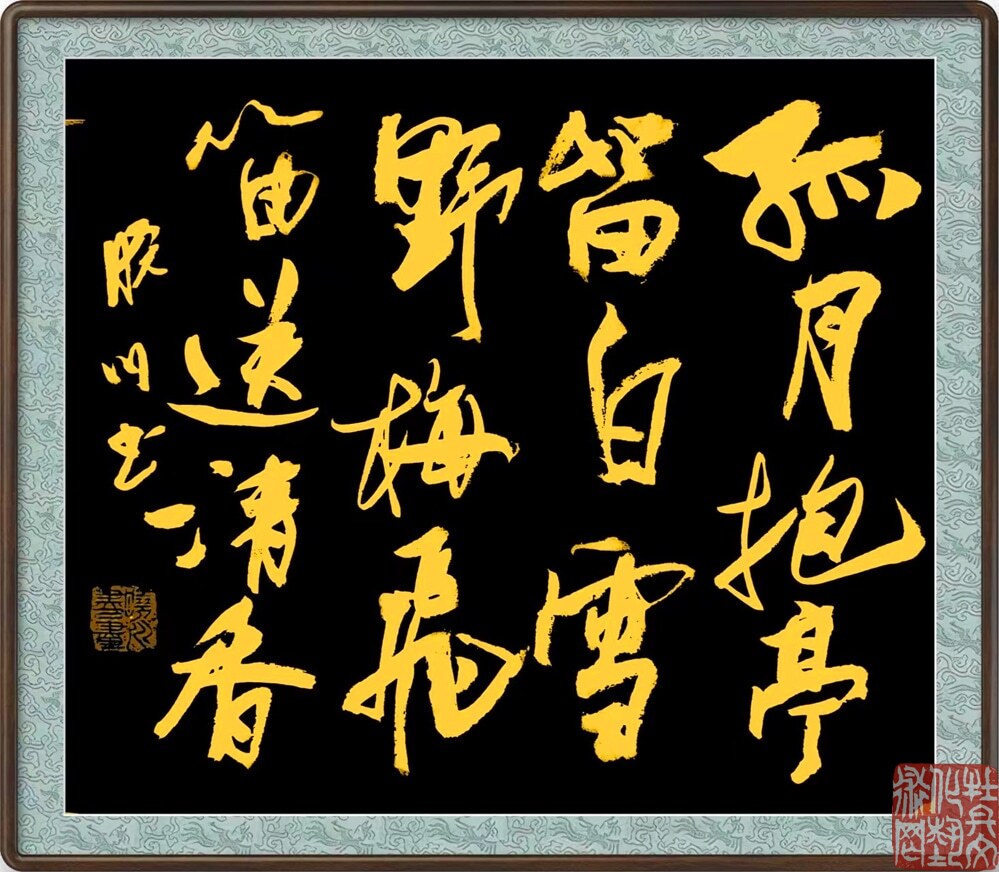 孤月抱亭
留白雪
野梅飛
笛送清香
勝川书